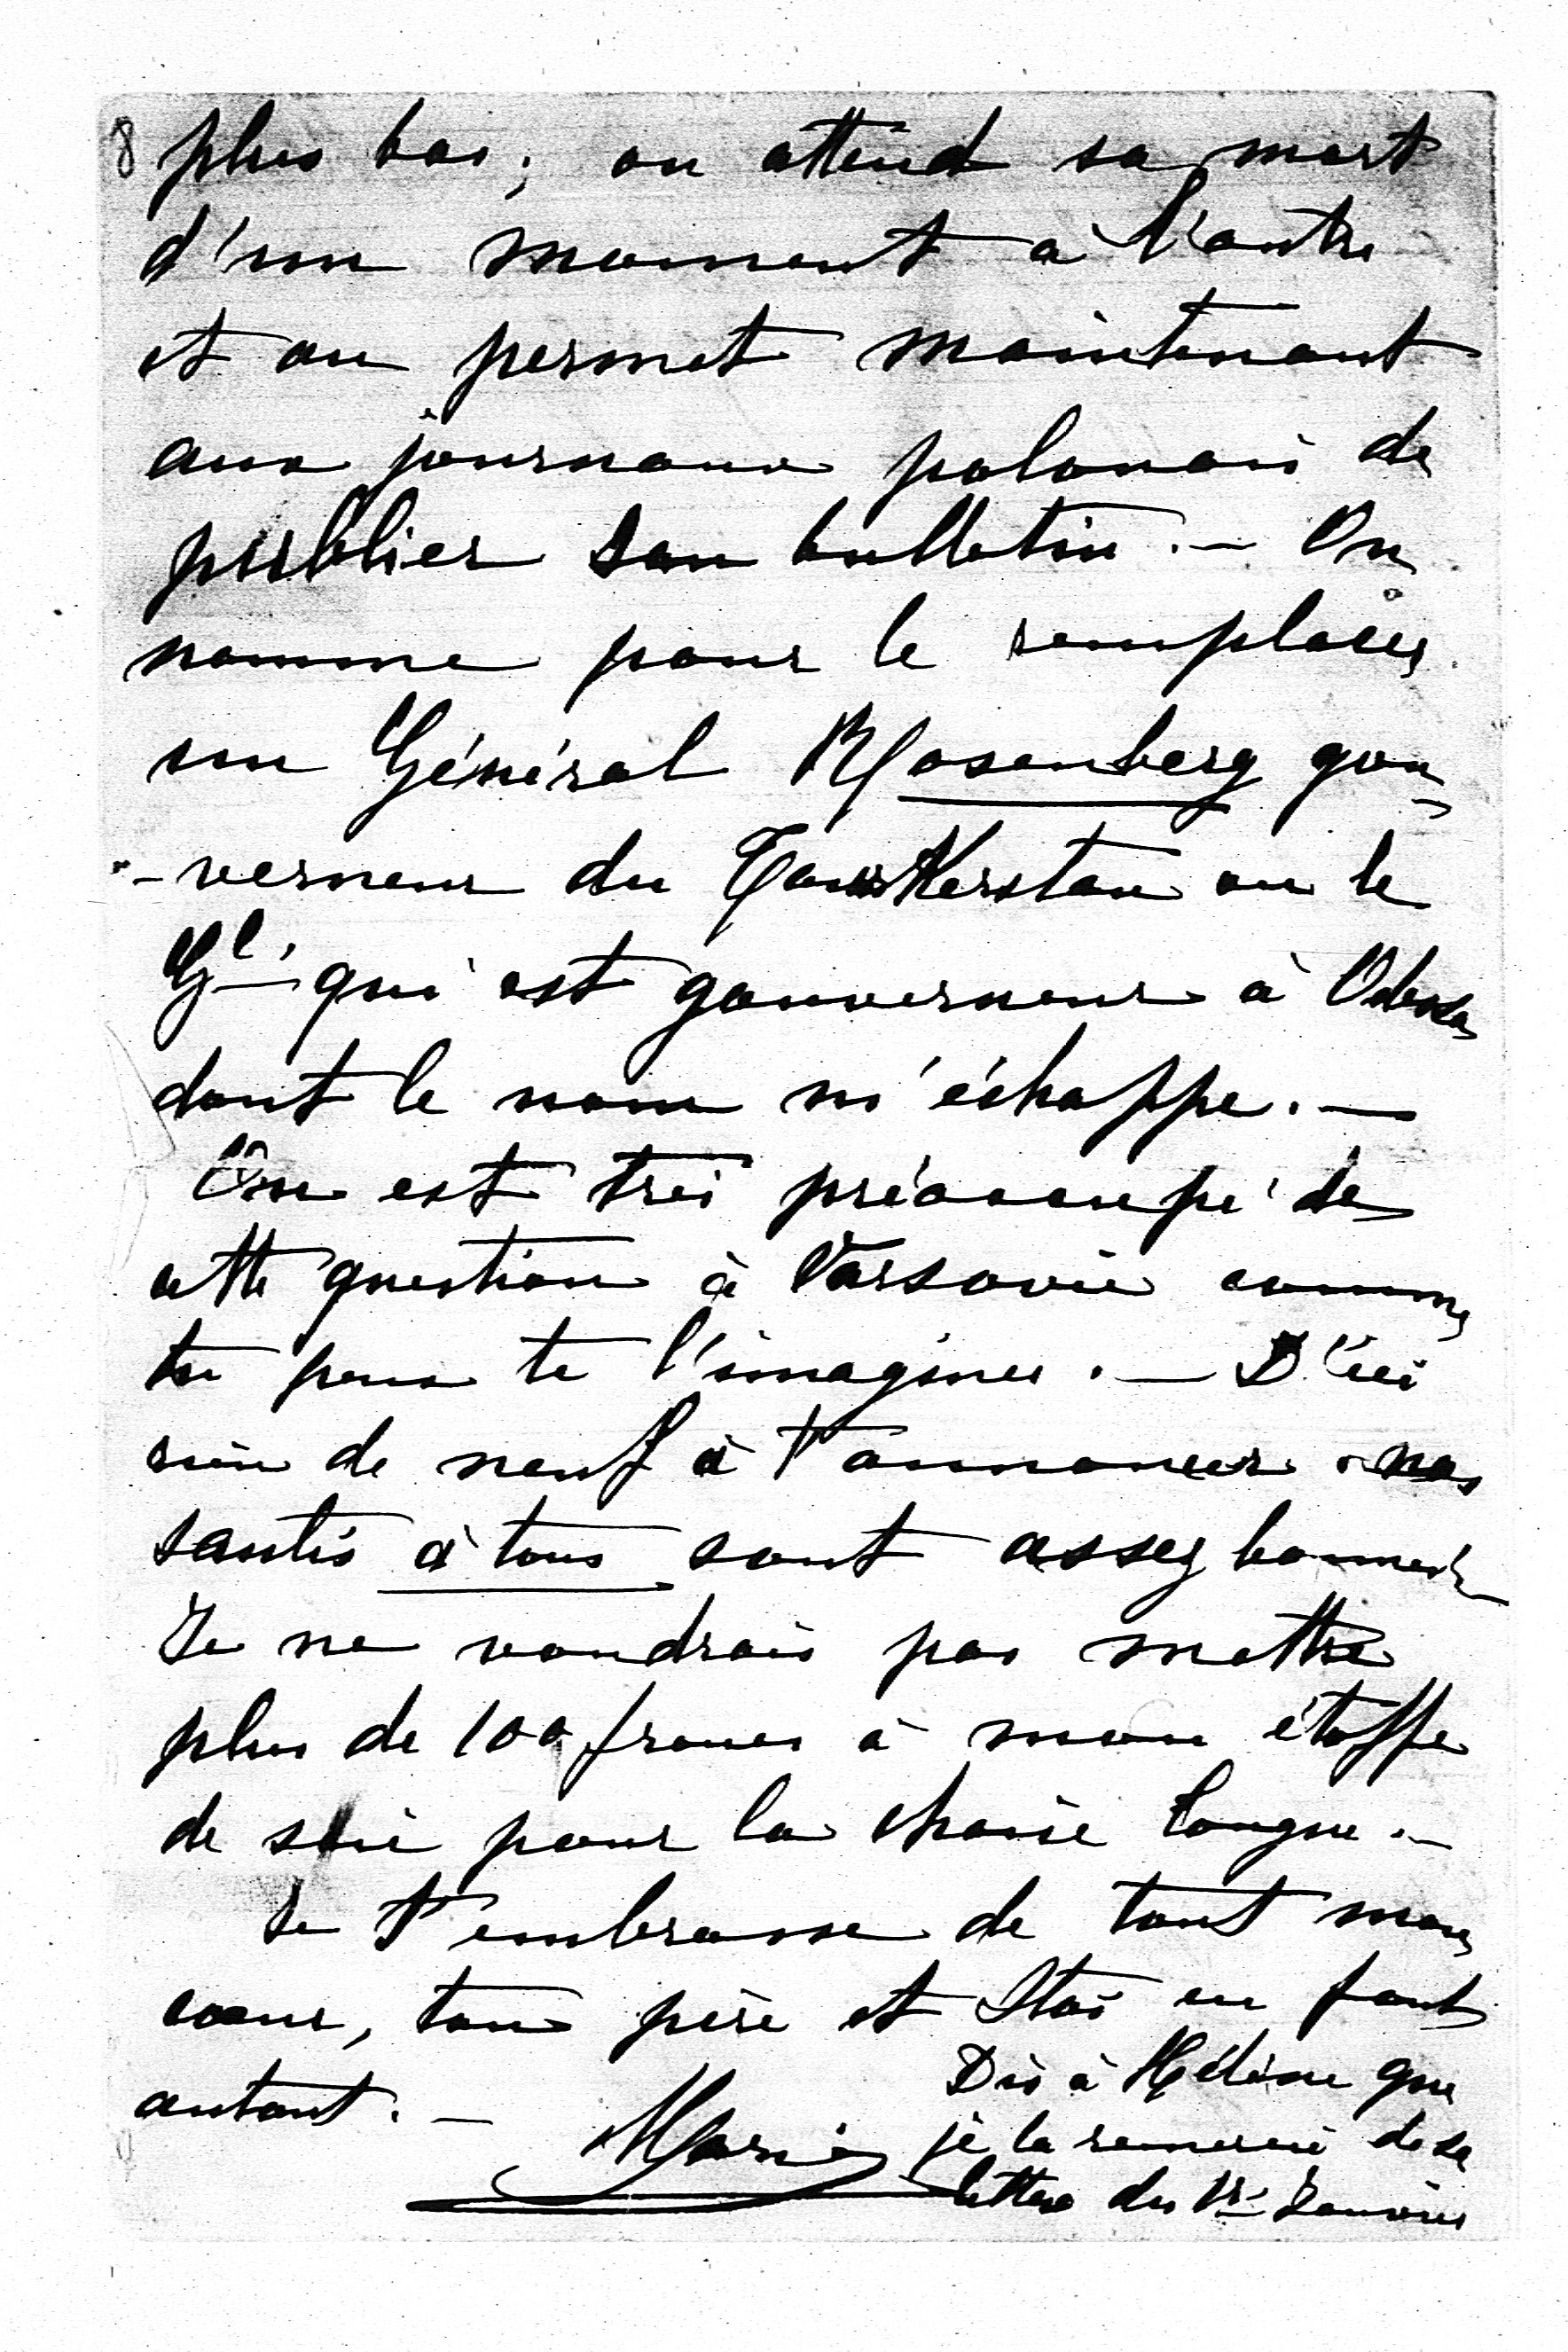 8 plus bas ; on attend sa mort
d'un moment à l'autre
et on permet maintenant
aux journaux polonais de
publier son bulletin. — On
nomme pour le remplacer
un Général Rosenberg gou-
-verneur du Tourkestan ou le
Gl. qui est gouverneur à Odessa
dont le nom m'échappe. —
On est très préoccupé de
cette question à Varsovie comme
tu peux te l'imaginer. — D'ici
rien de neuf à t'annoncer. nos
santés à tous sont assez bonnes.
Je ne voudrais pas mettre
plus de 100 francs à mon étoffe
de soie pour la chaise longue. —
Je t'embrasse de tout mon
cœur, ton père et Stas en font
autant. —
Marie
Dis à Hélène que
je la remercie de sa
lettre du 1r Janvier